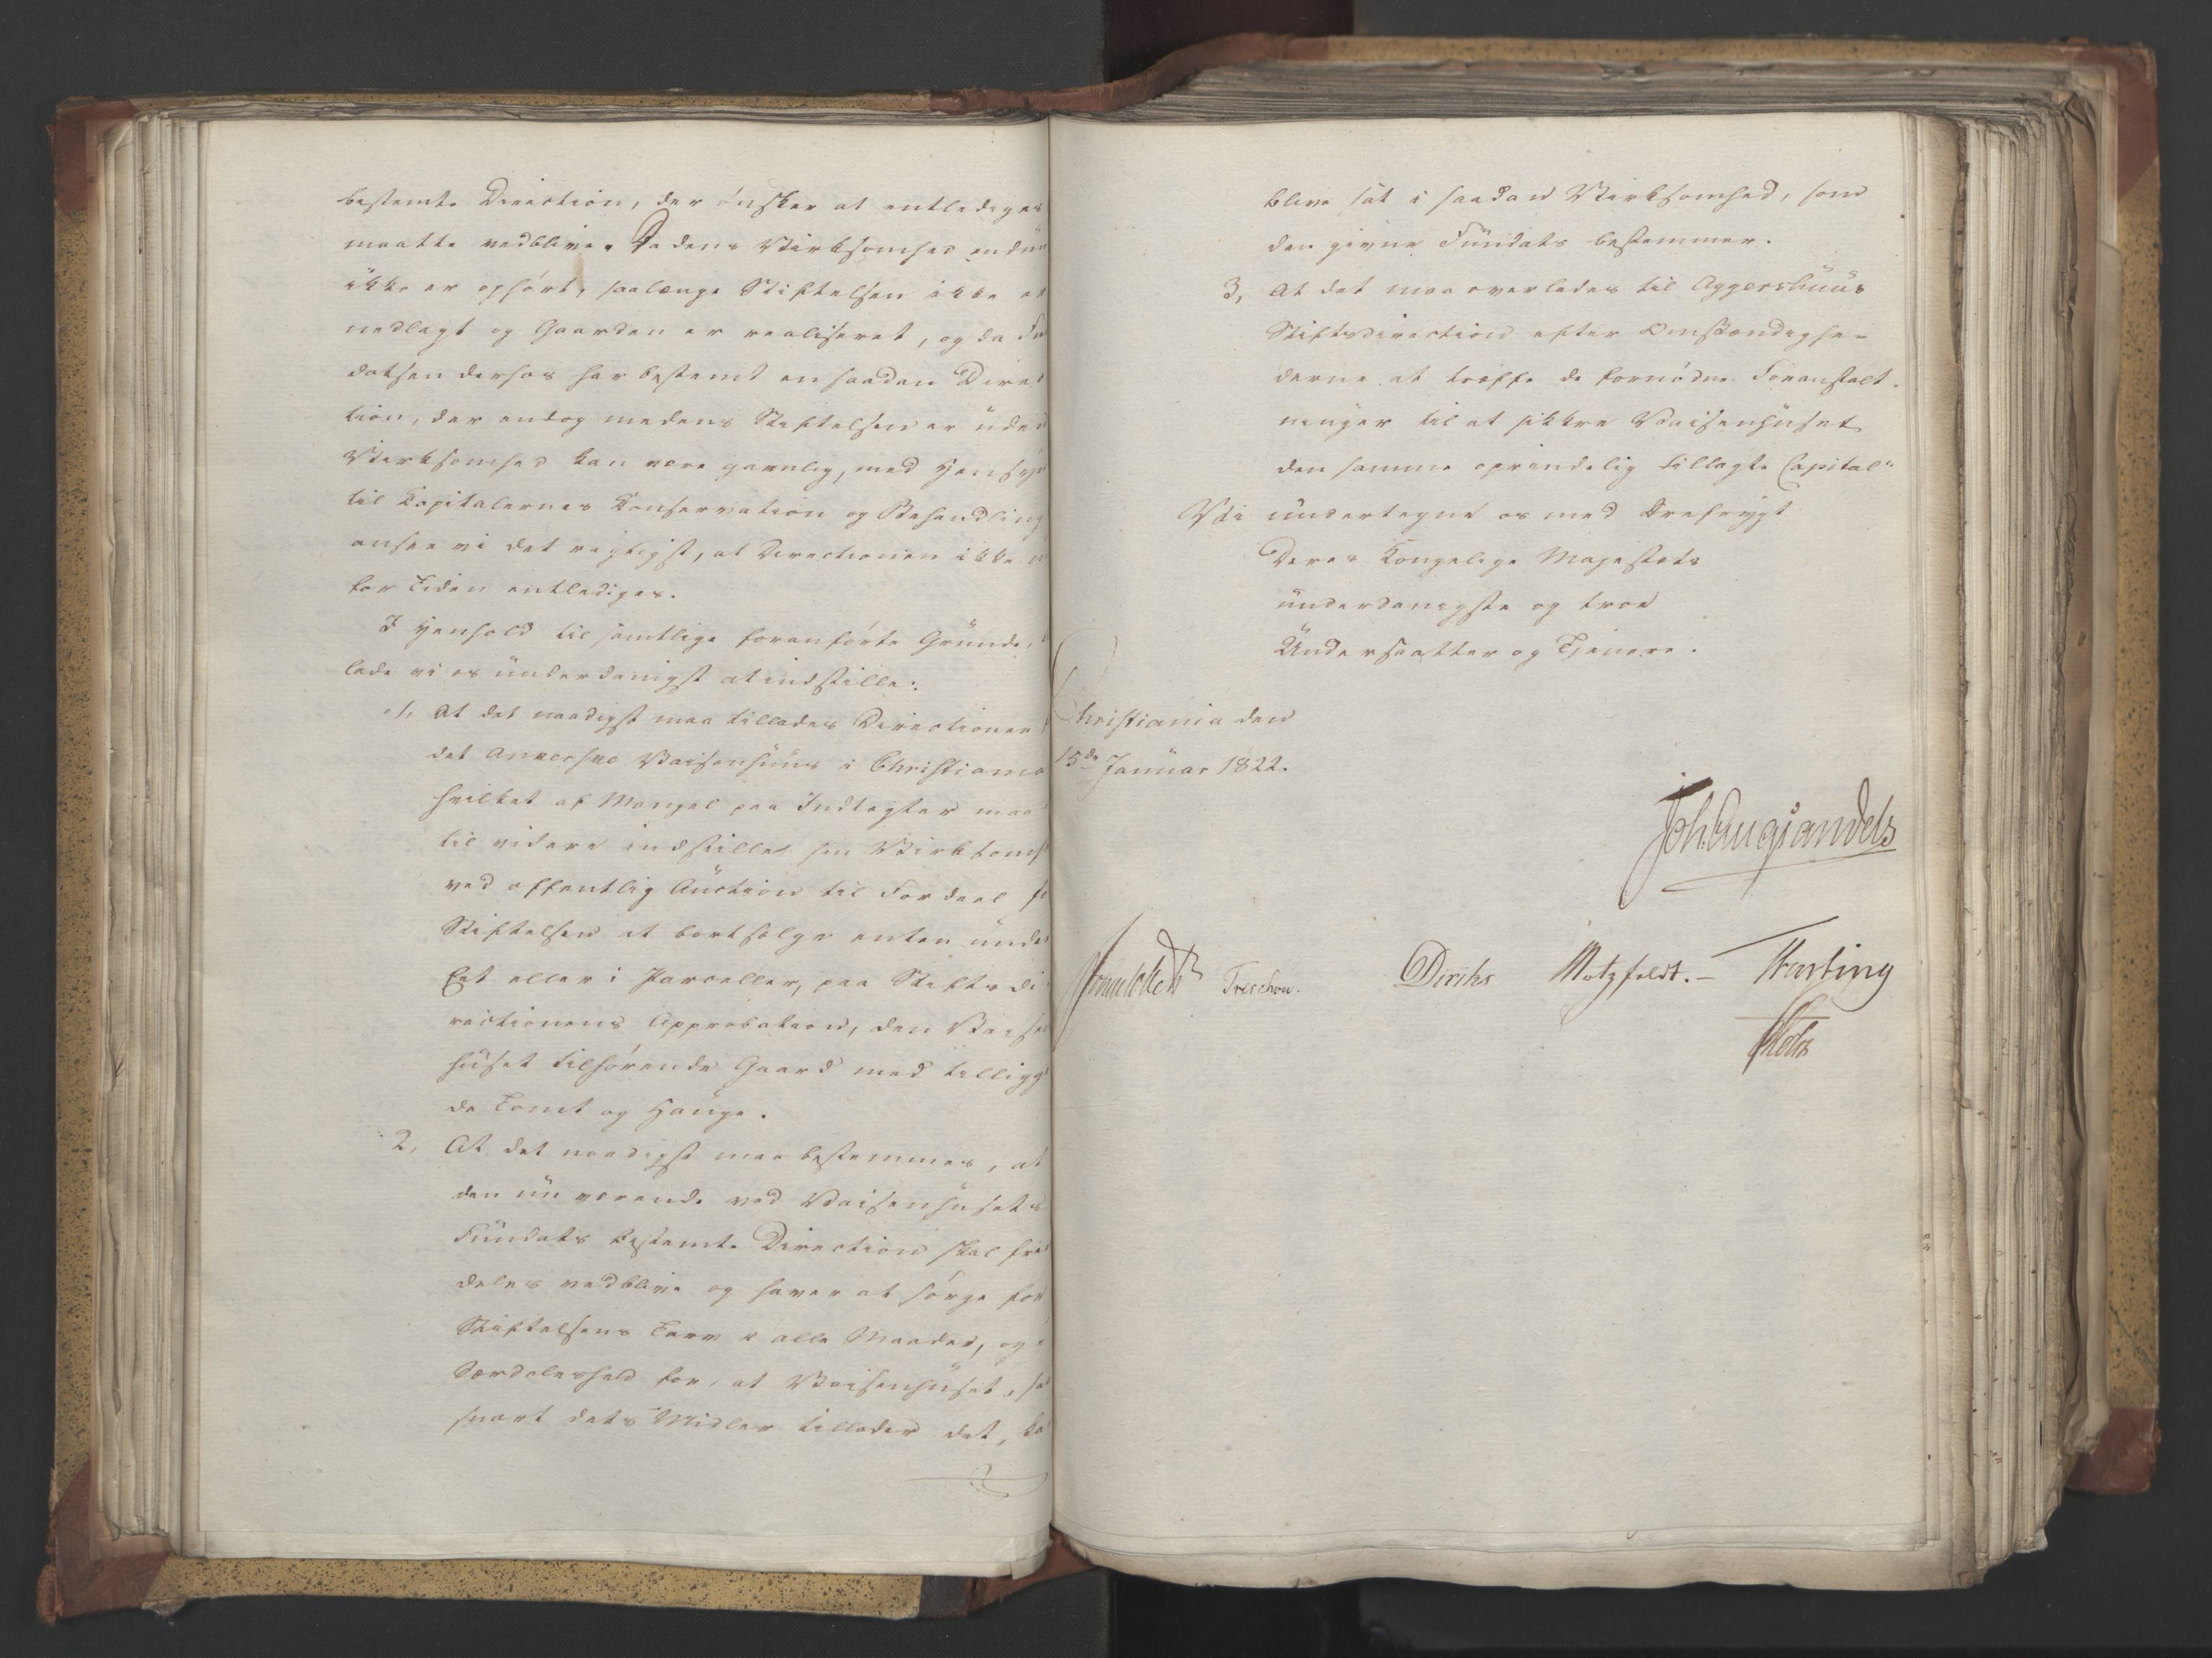 bestemte Direction, der ønsker at entlediges
maatte vedblive. Da dens Virksomhed endnu
ikke er ophørt, saalænge Stiftelsen ikke er
nedlagt og Gaarden er realiseret, og da Fun
datsen derhos har bestemt en saadan Direc
tion, der endog medens Stiftelsen er uden
Virksomhed kan være gavnlig, med Hensyn
til Kapitalernes Conservation og Behandling
ansee vi det rigtigst, at Directionen ikke
for Tiden entlediges.
I Henhold til samtlige foranførte Grunde,
lade vi os underdanigst at indstille:
1, At det naadigst maa tillades Directionen
det Ankerske Vaisenhuus i Christiania
hvilket af Mangel paa Indtægter maa
til videre indstille sin Virksomh
ved offentlig Auction til Fordeel for
Stiftelsen at bortsælge enten under
Eet eller i Parceller, paa Stiftsdi
rectionens Approbation, den Vaisen
huset tilhørende Gaard med tilligg
de Tomt og Hauge.
2, At det naadigst maa bestemmes, at
den nu værende ved Vaisenhusets
Fundats bestemte Direction skal frem
deles vedblive og haver at sørge for
Stiftelsens Tarv i alle Maader, og
Særdeleshed for, at Vaisenhuset, saa
snart dets Midler tillader det, kan
blive sat i saadan Virksomhed, som
den givne Fundats bestemmer.
3, At det maa overlades til Aggershuus
Stiftsdirection efter Omstændighe-
derne at træffe de fornødne Foranstalt-
ninger til at sikkre Vaisenhuset
den samme oprindelig tillagte Capital"
Vi undertegne os med Ærefrygt
Deres Kongelige Majestæts
underdanigste og troe
Undersaatter og Tjenere.
Christiania den
15de Januar 1822.
Joh. Aug. Sandels
Sommerhielm Treschow. Diriks Motzfeldt.- Fasting
Holst